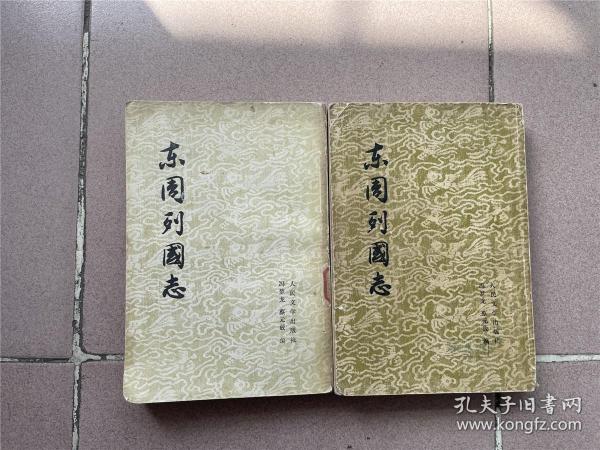 东周列國志
冯梦龙 蔡元放 编
人民文学出版社
东周列國志
冯梦龙 蔡元放 编
人民文学出版社
孔夫子旧书网
www.kongfz.com